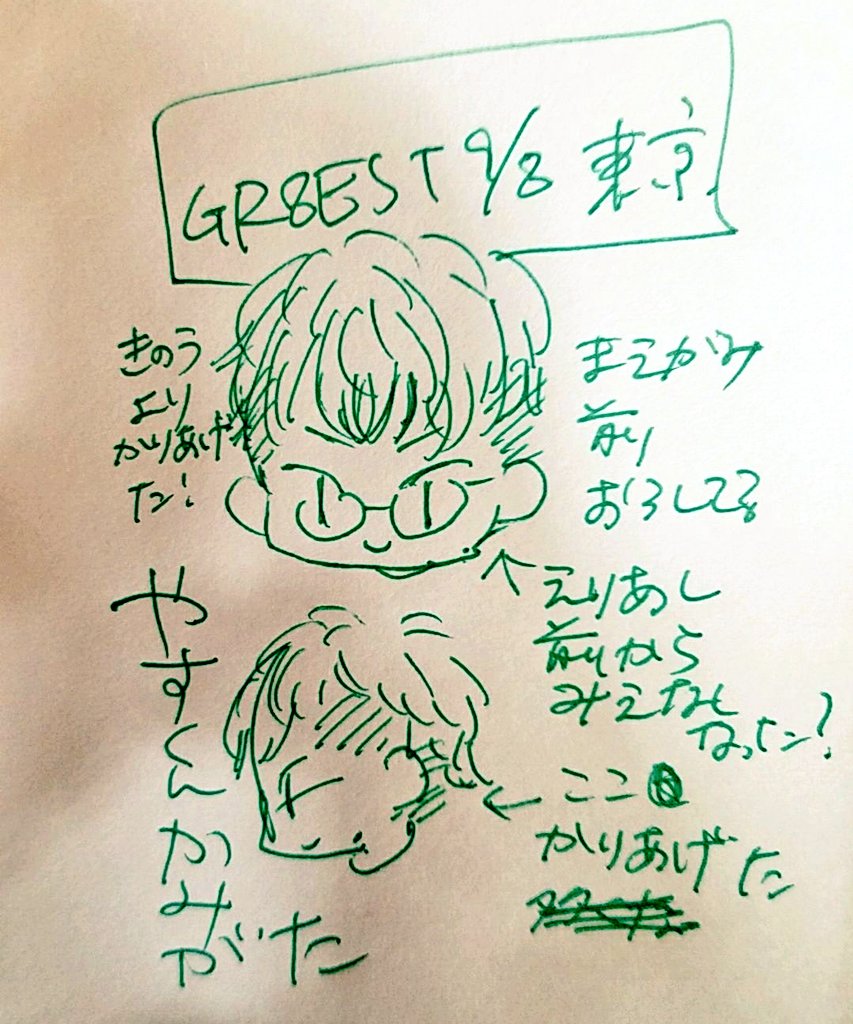 GR8EST 9/8 東京
きのう
より
かりあげ
た!
まえがみ
前
おろしてる
えりあし
前から
みえなく
なった?
ここ
かりあげた
やすくんかみがた